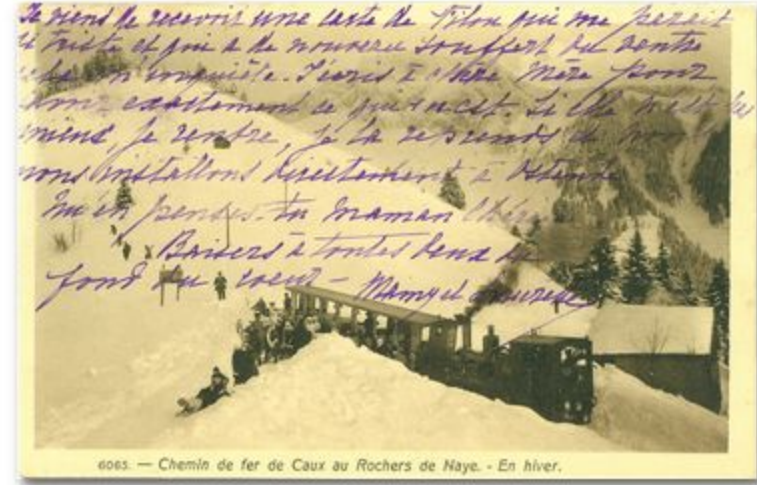 Je viens de recevoir une carte de Filou qui me paraît
si triste et qui a de nouveau souffert du ventre
cela m'inquiète. J'écris à chère Mère pour
exactement ce qui en est. Si elle n'est
mieux, je rentre, je la reprends et nous
nous installons directement à Ostende
Qu'en penses-tu Maman chérie
Baisers à toutes deux du
fond du coeur -
6065. — Chemin de fer de Caux au Rochers de Naye. - En hiver.